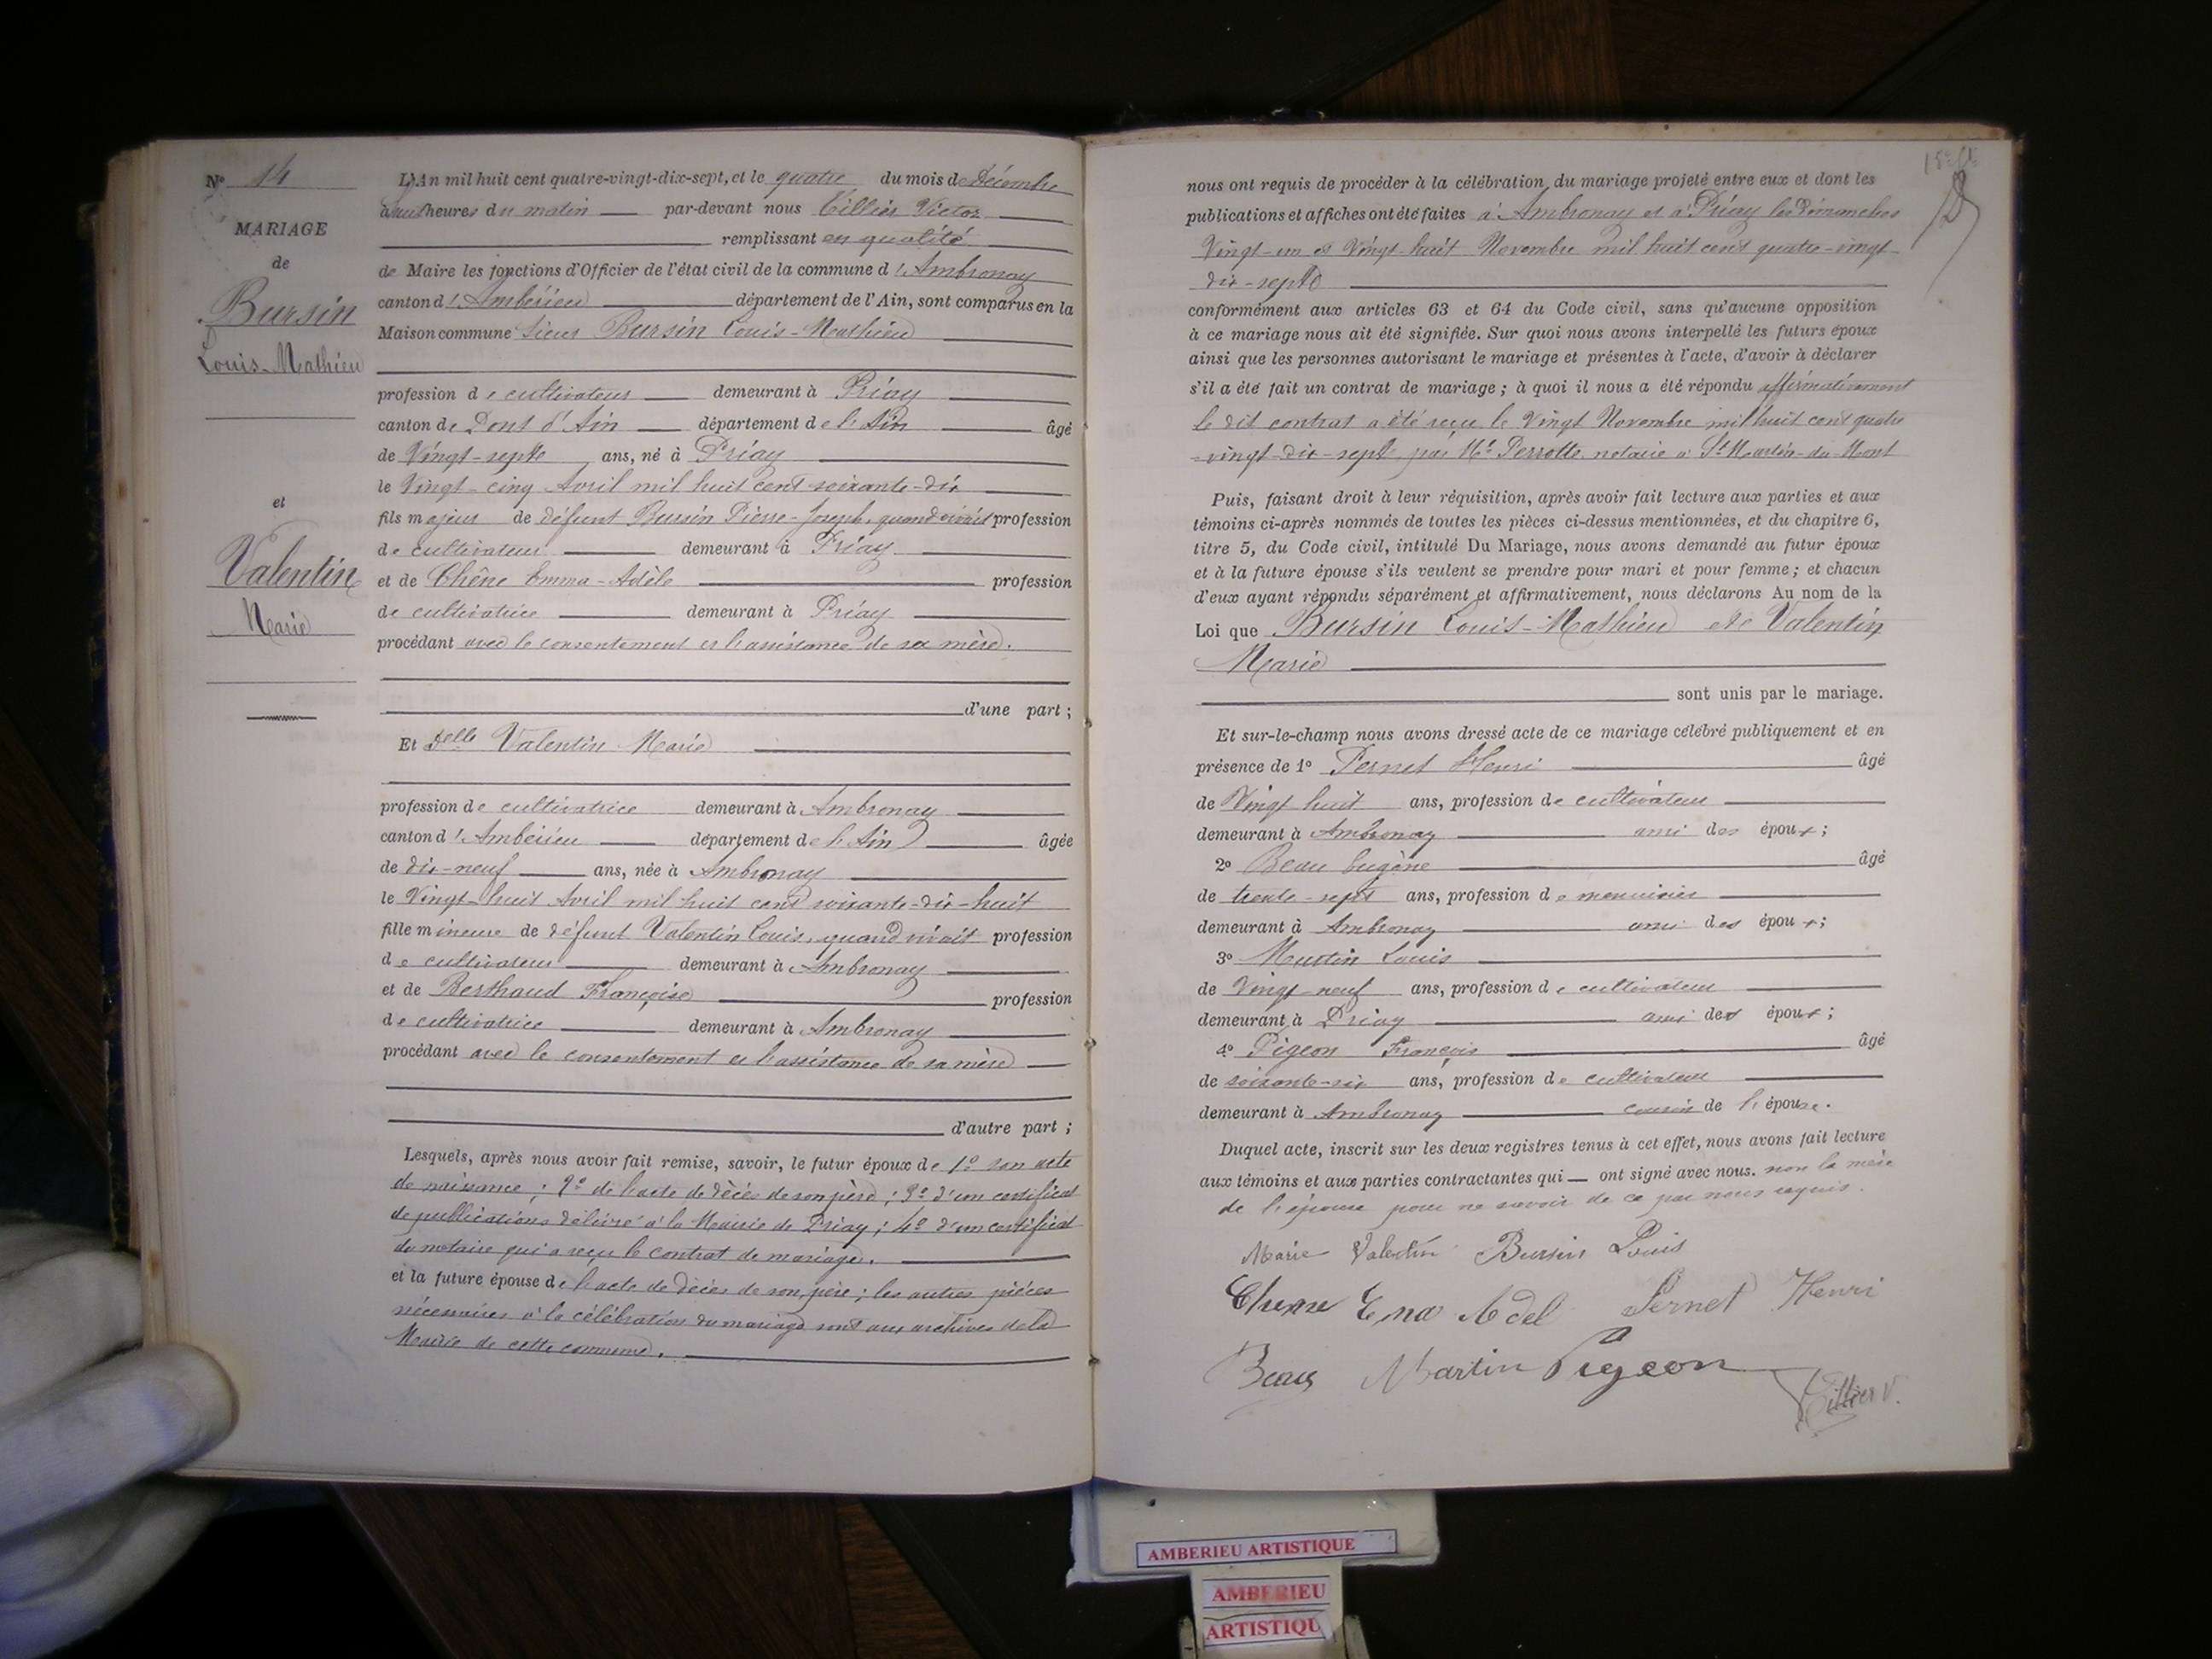 N° 14
MARIAGE
de
Bursin
Louis-Mathieu
et
Valentin
Marie
L'An mil huit cent quatre-vingt-dix-sept, et le quatre du mois de Décembre
à huit heures du matin par-devant nous Tillier Victor
remplissant en qualité
de Maire les fonctions d'Officier de l'état civil de la commune d'Ambronay
canton d'Ambérieu département de l'Ain, sont comparus en la
Maison commune Sieur Bursin Louis-Mathieu
profession de cultivateur demeurant à Priay
canton de Pont d'Ain département de l'Ain âgé
de Vingt-sept ans, né à Priay
le Vingt-cinq Avril mil huit cent soixante-dix
fils majeur de défunt Bursin Pierre-Joseph, quand vivait profession
de cultivateur demeurant à Priay
et de Chêne Emma-Adèle profession
de cultivatrice demeurant à Priay
procédant avec le consentement et l'assistance de sa mère.
d'une part ;
Et Delle Valentin Marie
profession de cultivatrice demeurant à Ambronay
canton d'Ambérieu département de l'Ain âgée
de dix-neuf ans, née à Ambronay
le Vingt-huit Avril mil huit cent soixante-dix-huit
fille mineure de défunt Valentin Louis, quand vivait profession
de cultivateur demeurant à Ambronay
et de Berthaud Françoise profession
de cultivatrice demeurant à Ambronay
procédant avec le consentement et l'assistance de sa mère
d'autre part ;
Lesquels, après nous avoir fait remise, savoir, le futur époux de 1° son acte
de naissance ; 2° de l'acte de décès de son père ; 3° d'un certificat
de publications délivré à la Mairie de Priay ; 4° d'un certificat
du notaire qui a reçu le contrat de mariage.
et la future épouse de l'acte de décès de son père ; les autres pièces
nécessaires à la célébration du mariage sont aux archives de la
Mairie de cette commune.
nous ont requis de procéder à la célébration du mariage projeté entre eux et dont les
publications et affiches ont été faites à Ambronay et à Priay les Dimanches
Vingt-un et Vingt-huit Novembre mil huit cent quatre-vingt-
dix-sept
conformément aux articles 63 et 64 du Code civil, sans qu'aucune opposition
à ce mariage nous ait été signifiée. Sur quoi nous avons interpellé les futurs époux
ainsi que les personnes autorisant le mariage et présentes à l'acte, d'avoir à déclarer
s'il a été fait un contrat de mariage ; à quoi il nous a été répondu affirmativement
le dit contrat a été reçu le Vingt Novembre mil huit cent quatre
-vingt-dix-sept par Me Perrotte notaire à St Martin-du-Mont
Puis, faisant droit à leur réquisition, après avoir fait lecture aux parties et aux
témoins ci-après nommés de toutes les pièces ci-dessus mentionnées, et du chapitre 6,
titre 5, du Code civil, intitulé Du Mariage, nous avons demandé au futur époux
et à la future épouse s'ils veulent se prendre pour mari et pour femme ; et chacun
d'eux ayant répondu séparément et affirmativement, nous déclarons Au nom de la
Loi que Bursin Louis-Mathieu et Valentin
Marie
sont unis par le mariage.
Et sur-le-champ nous avons dressé acte de ce mariage célébré publiquement et en
présence de 1° Pernet Henri âgé
de Vingt huit ans, profession de cultivateur
demeurant à Ambronay ami des époux ;
2° Beau Eugène âgé
de trente-sept ans, profession de menuisier
demeurant à Ambronay ami des époux ;
3° Martin Louis
de Vingt-neuf ans, profession de cultivateur
demeurant à Priay ami des époux ;
4° Pigeon François âgé
de soixante-six ans, profession de cultivateur
demeurant à Ambronay cousin de l'épouse.
Duquel acte, inscrit sur les deux registres tenus à cet effet, nous avons fait lecture
aux témoins et aux parties contractantes qui ont signé avec nous. non la mère
de l'épouse pour ne savoir de ce par nous requis.
Marie Valentin Bursin Louis
Chene Ema Adel Pernet Henri
Beau Martin Pigeon
Tillier V.
AMBERIEU ARTISTIQUE
AMBERIEU
ARTISTIQU